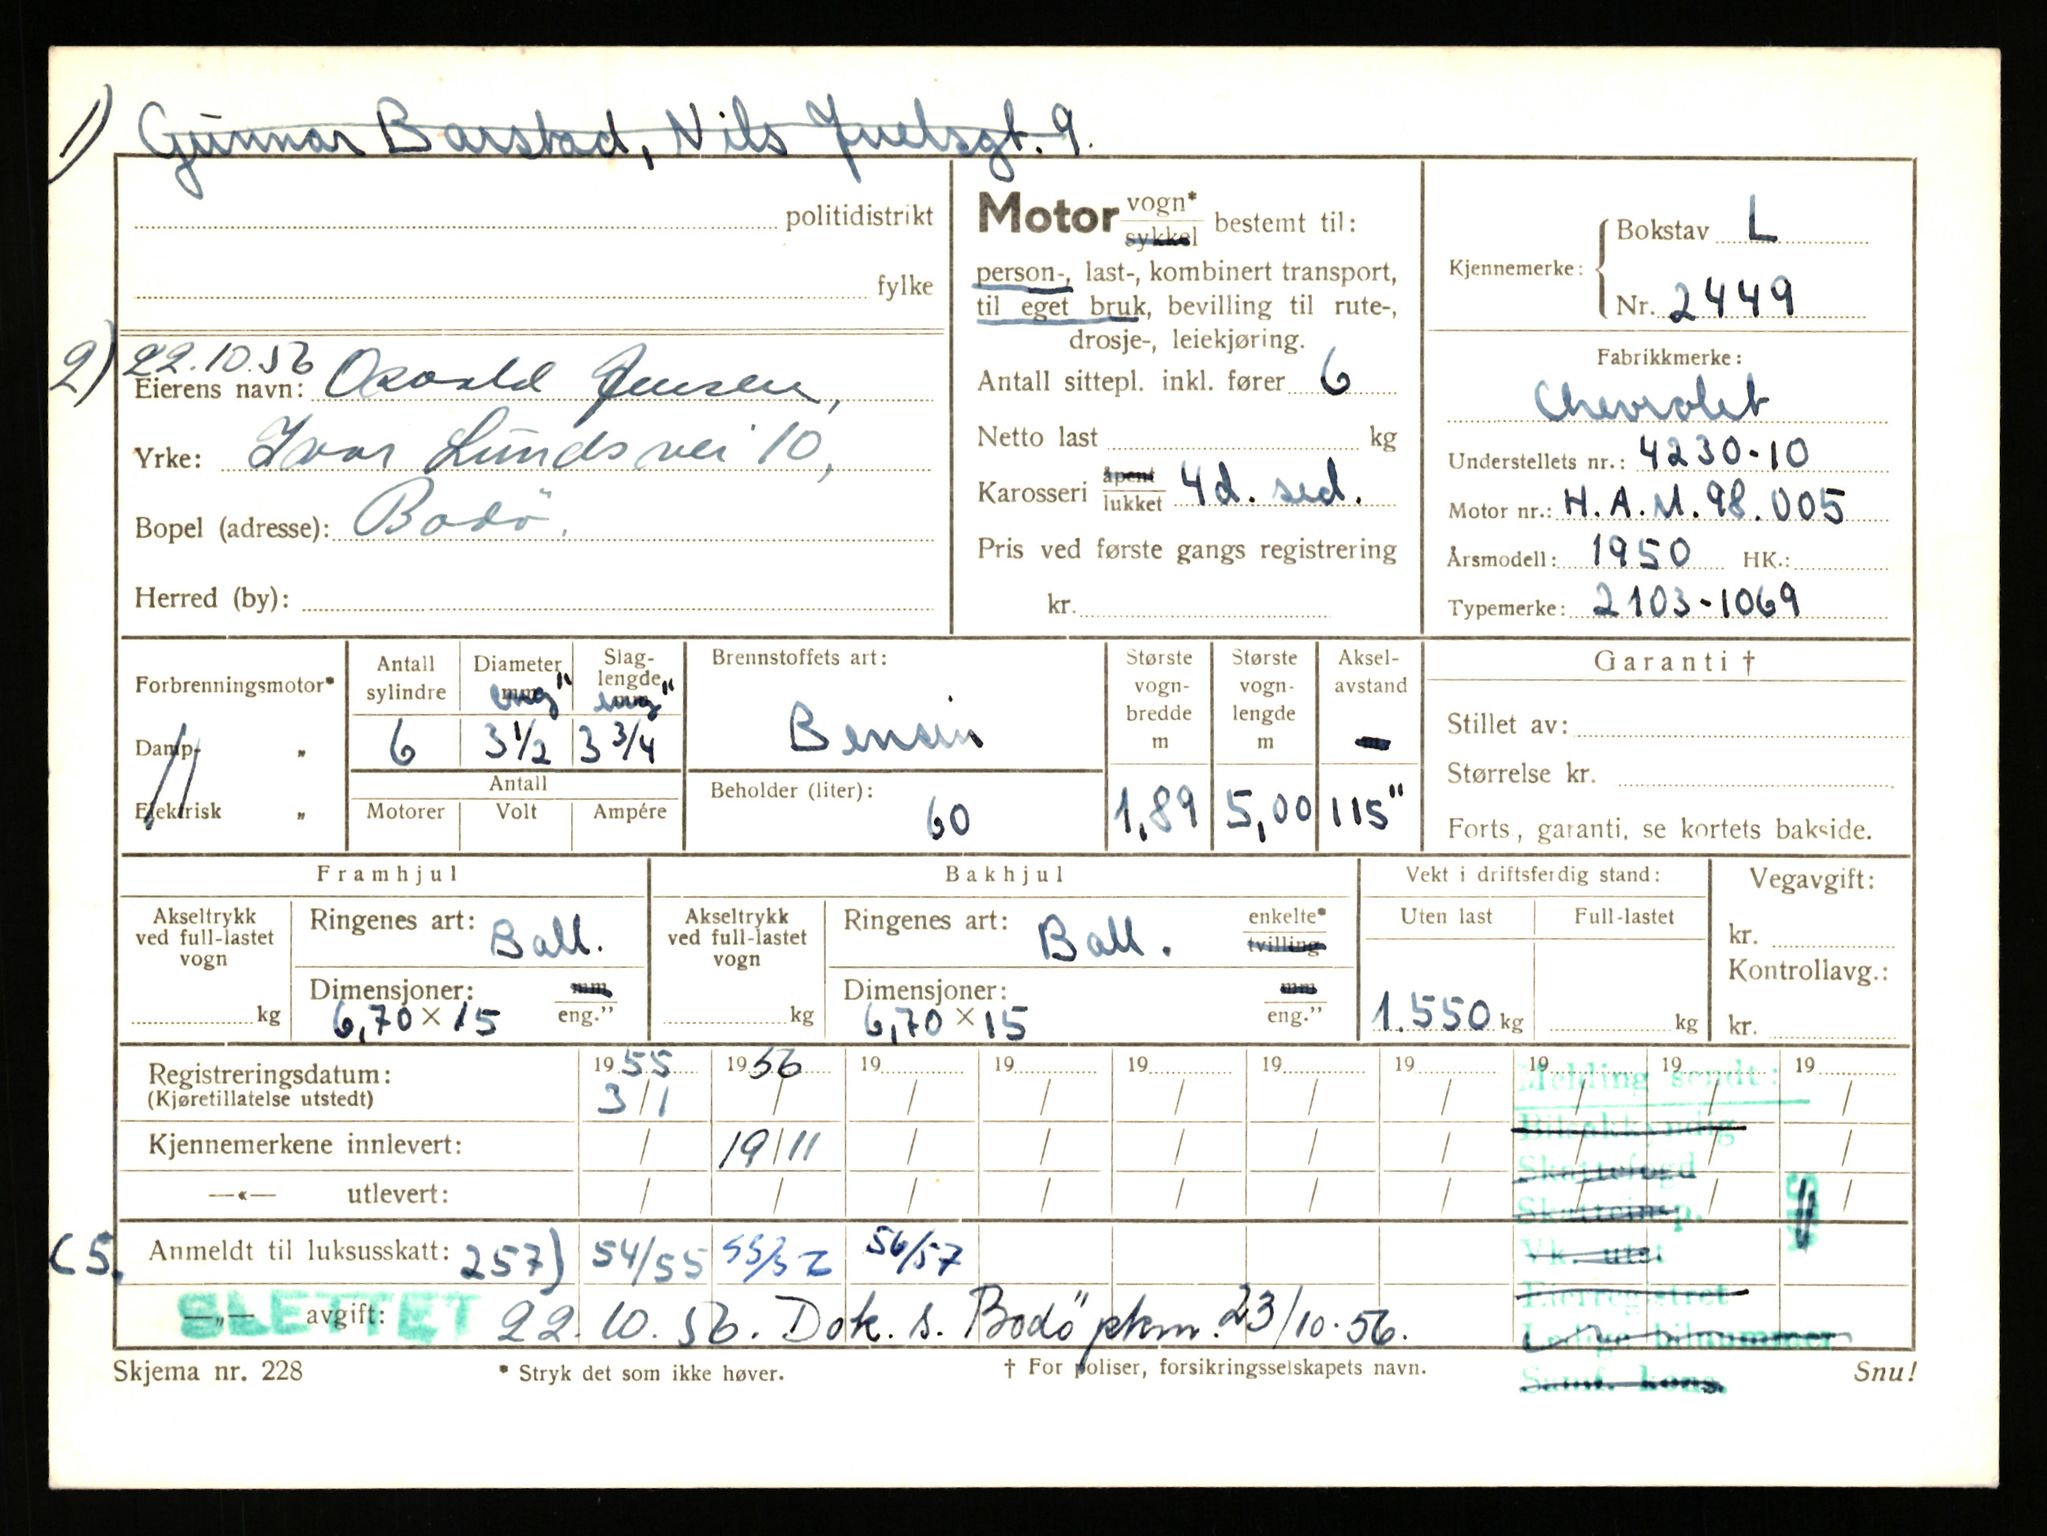 1) Gunnar Barstad, Nils Juelsgt. 9.
politidistrikt
fylke
2) 22.10.56
Eierens navn: Osvald Jensen,
Yrke: Ivar Lunds vei 10,
Bopel (adresse): Bodö.
Herred (by):
Motor vogn* sykkel bestemt til:
person-, last-, kombinert transport,
til eget bruk, bevilling til rute-,
drosje-, leiekjøring.
Antall sittepl. inkl. fører 6
Netto last kg
Karosseri åpent lukket 4d. sed.
Pris ved første gangs registrering
kr.
Kjennemerke: Bokstav L
Nr. 2449
Fabrikkmerke:
Chevrolet
Understellets nr.: 4230-10
Motor nr.: H.A.M.98.005
Årsmodell: 1950 HK.:
Typemerke: 2103-1069
Forbrenningsmotor*
Damp- „
Elektrisk „
Antall sylindre
6
Diameter mm eng"
3 1/2
Slaglengde mm eng"
3 3/4
Antall
Motorer Volt Ampére
Brennstoffets art:
Bensin
Beholder (liter):
60
Største vognbredde m
1,89
Største vognlengde m
5,00
Akselavstand
115"
Garanti †
Stillet av:
Størrelse kr.
Forts., garanti, se kortets bakside.
Framhjul
Akseltrykk ved full-lastet vogn
kg
Ringenes art: Ball.
Dimensjoner: mm eng."
6,70 × 15
Bakhjul
Akseltrykk ved full-lastet vogn
kg
Ringenes art: Ball. enkelte* tvilling
Dimensjoner: mm eng."
6,70 × 15
Vekt i driftsferdig stand:
Uten last Full-lastet
1.550 kg kg
Vegavgift:
kr.
Kontrollavg.:
kr.
Registreringsdatum: 1955 1956 19 19 19 19 19 19 19 19
(Kjøretillatelse utstedt) 3/1 / / / / / / / / /
Kjennemerkene innlevert: / 19/11 / / / / / / / /
—«— utlevert: / / / / / / / / / /
(5. Anmeldt til luksusskatt: 257) 54/55 56/57
—„— avgift: 22.10.56. Dok. s. Bodö pkm. 23/10.56.
SLETTET
Melding sendt:
Bilsakkyndig
Skattefogd
Skatteinsp.
Vk. utst
Eierregistret
Ledige bilnummer
Samf. kons.
Skjema nr. 228
* Stryk det som ikke høver.
† For poliser, forsikringsselskapets navn.
Snu!